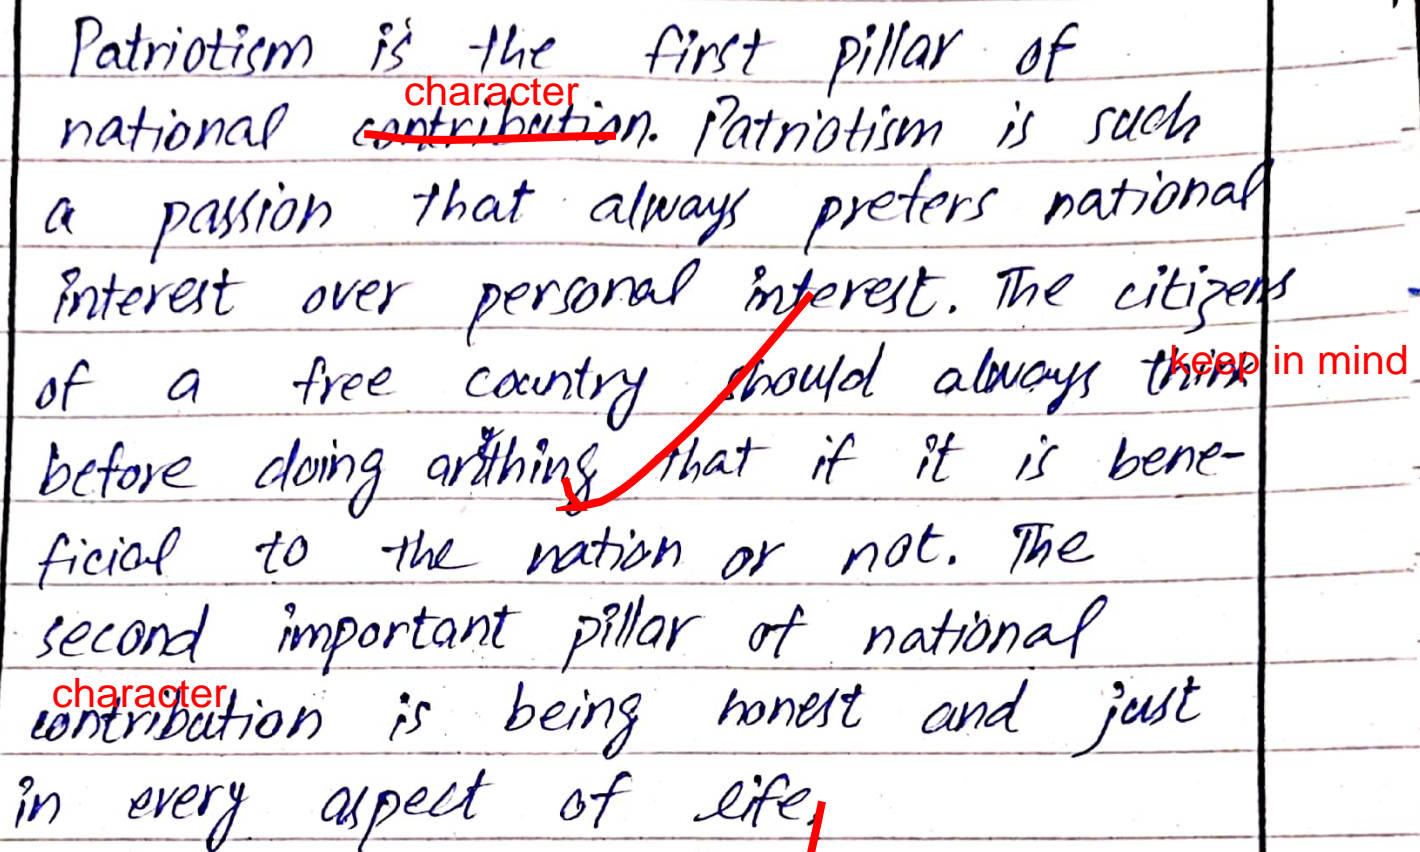 Patriotism is the first pillar of
character
national contribution. Patriotism is such
a passion that always prefers national
interest over personal interest. The citizens
keep in mind
of a free country should always think
before doing anything that if it is bene-
ficial to the nation or not. The
second important pillar of national
character
contribution is being honest and just
in every aspect of life.